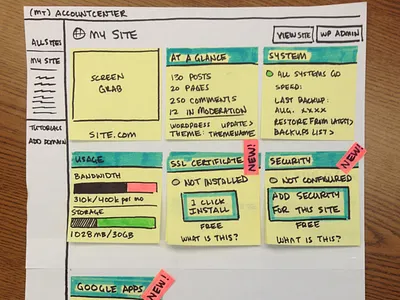 (MT) ACCOUNTCENTER
ALL SITES
MY SITE
TUTORIALS
ADD DOMAIN
MY SITE
VIEW SITE
WP ADMIN
SCREEN
GRAB
SITE.COM
AT A GLANCE
130 POSTS
20 PAGES
250 COMMENTS
12 IN MODERATION
WORDPRESS UPDATE>
THEME: THEMENAME>
SYSTEM
ALL SYSTEMS GO
SPEED:
LAST BACKUP:
AUG. XXXX
RESTORE FROM LATEST>
BACKUPS LIST>
USAGE
BANDWIDTH
310K/400K per mo
STORAGE
1028MB/30GB
SSL CERTIFICATE
NEW!
NOT INSTALLED
1 CLICK
INSTALL
FREE
WHAT IS THIS?
SECURITY
NEW!
NOT CONFIGURED
ADD SECURITY
FOR THIS SITE
FREE
WHAT IS THIS?
GOOGLE APPS
NEW!